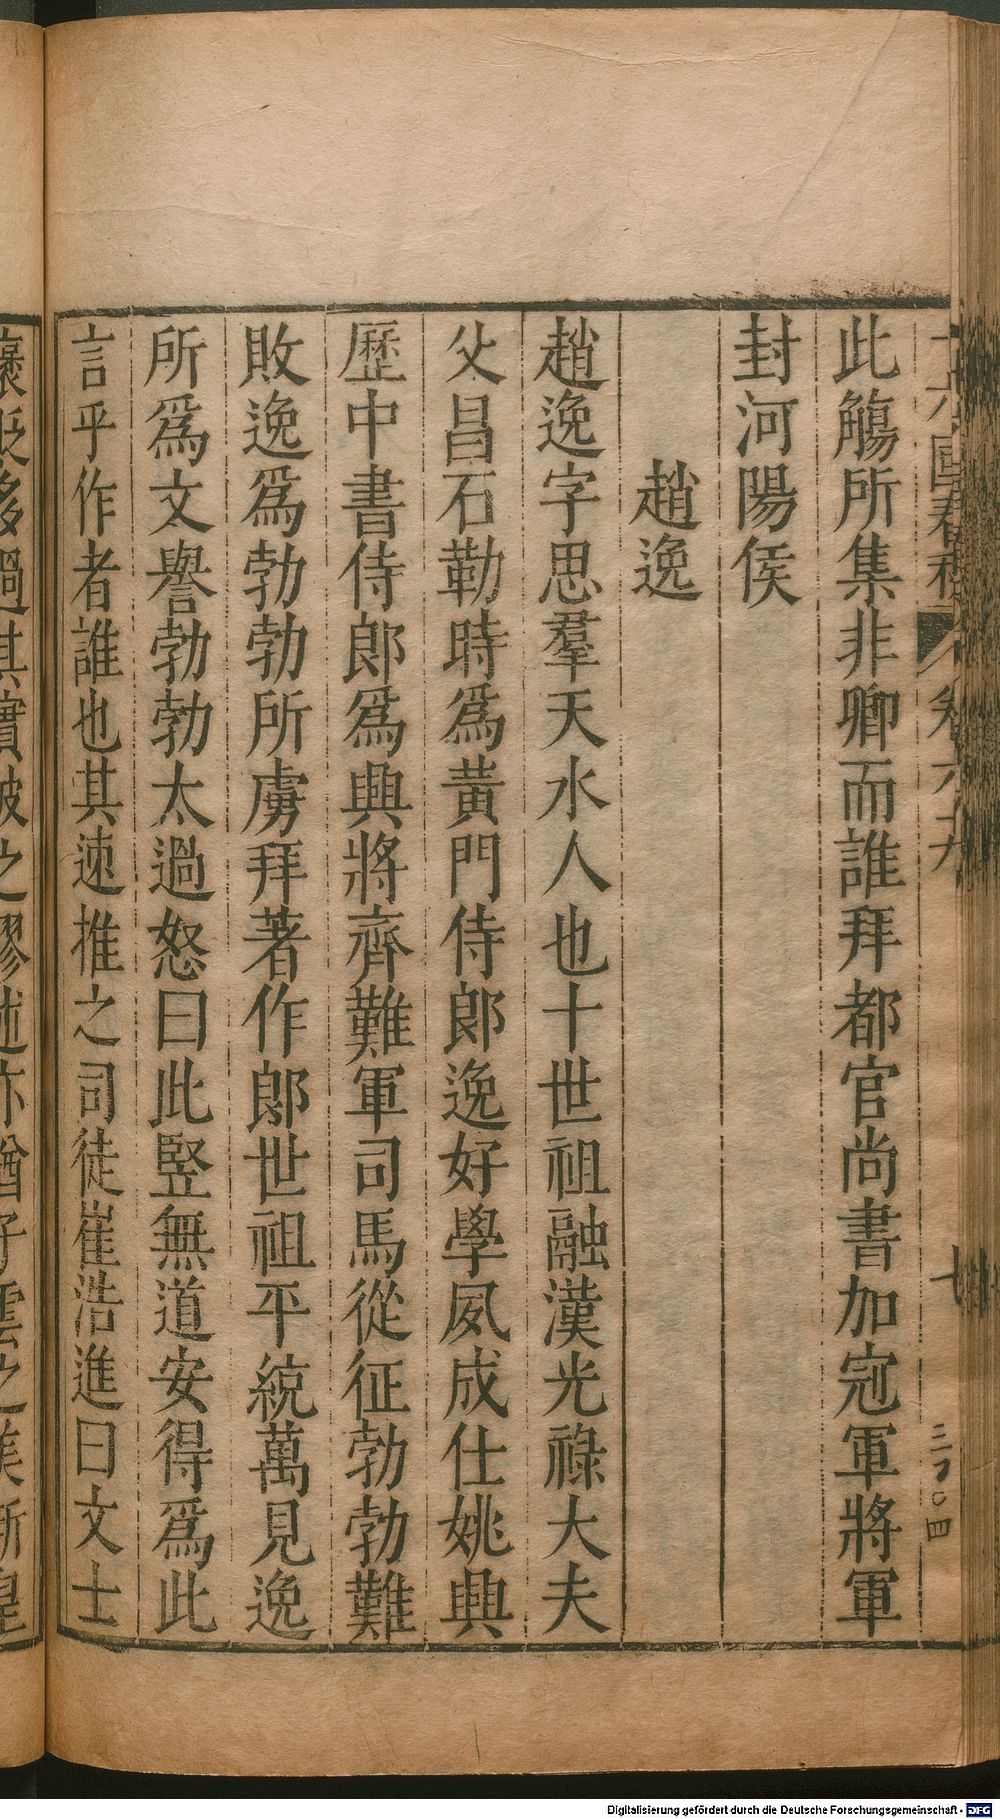 十六國春秋 卷六十九 七
三七〇四
此觴所集非卿而誰拜都官尚書加冠軍將軍
封河陽侯
趙逸
趙逸字思羣天水人也十世祖融漢光祿大夫
父昌石勒時爲黃門侍郎逸好學夙成仕姚興
歷中書侍郎爲興將齊難軍司馬從征勃勃難
敗逸爲勃勃所虜拜著作郎世祖平統萬見逸
所爲文譽勃勃太過怒曰此豎無道安得爲此
言乎作者誰也其速推之司徒崔浩進曰文士
褒貶多過其實彼之謬述亦猶子雲之美新皇
Digitalisierung gefördert durch die Deutsche Forschungsgemeinschaft - DFG